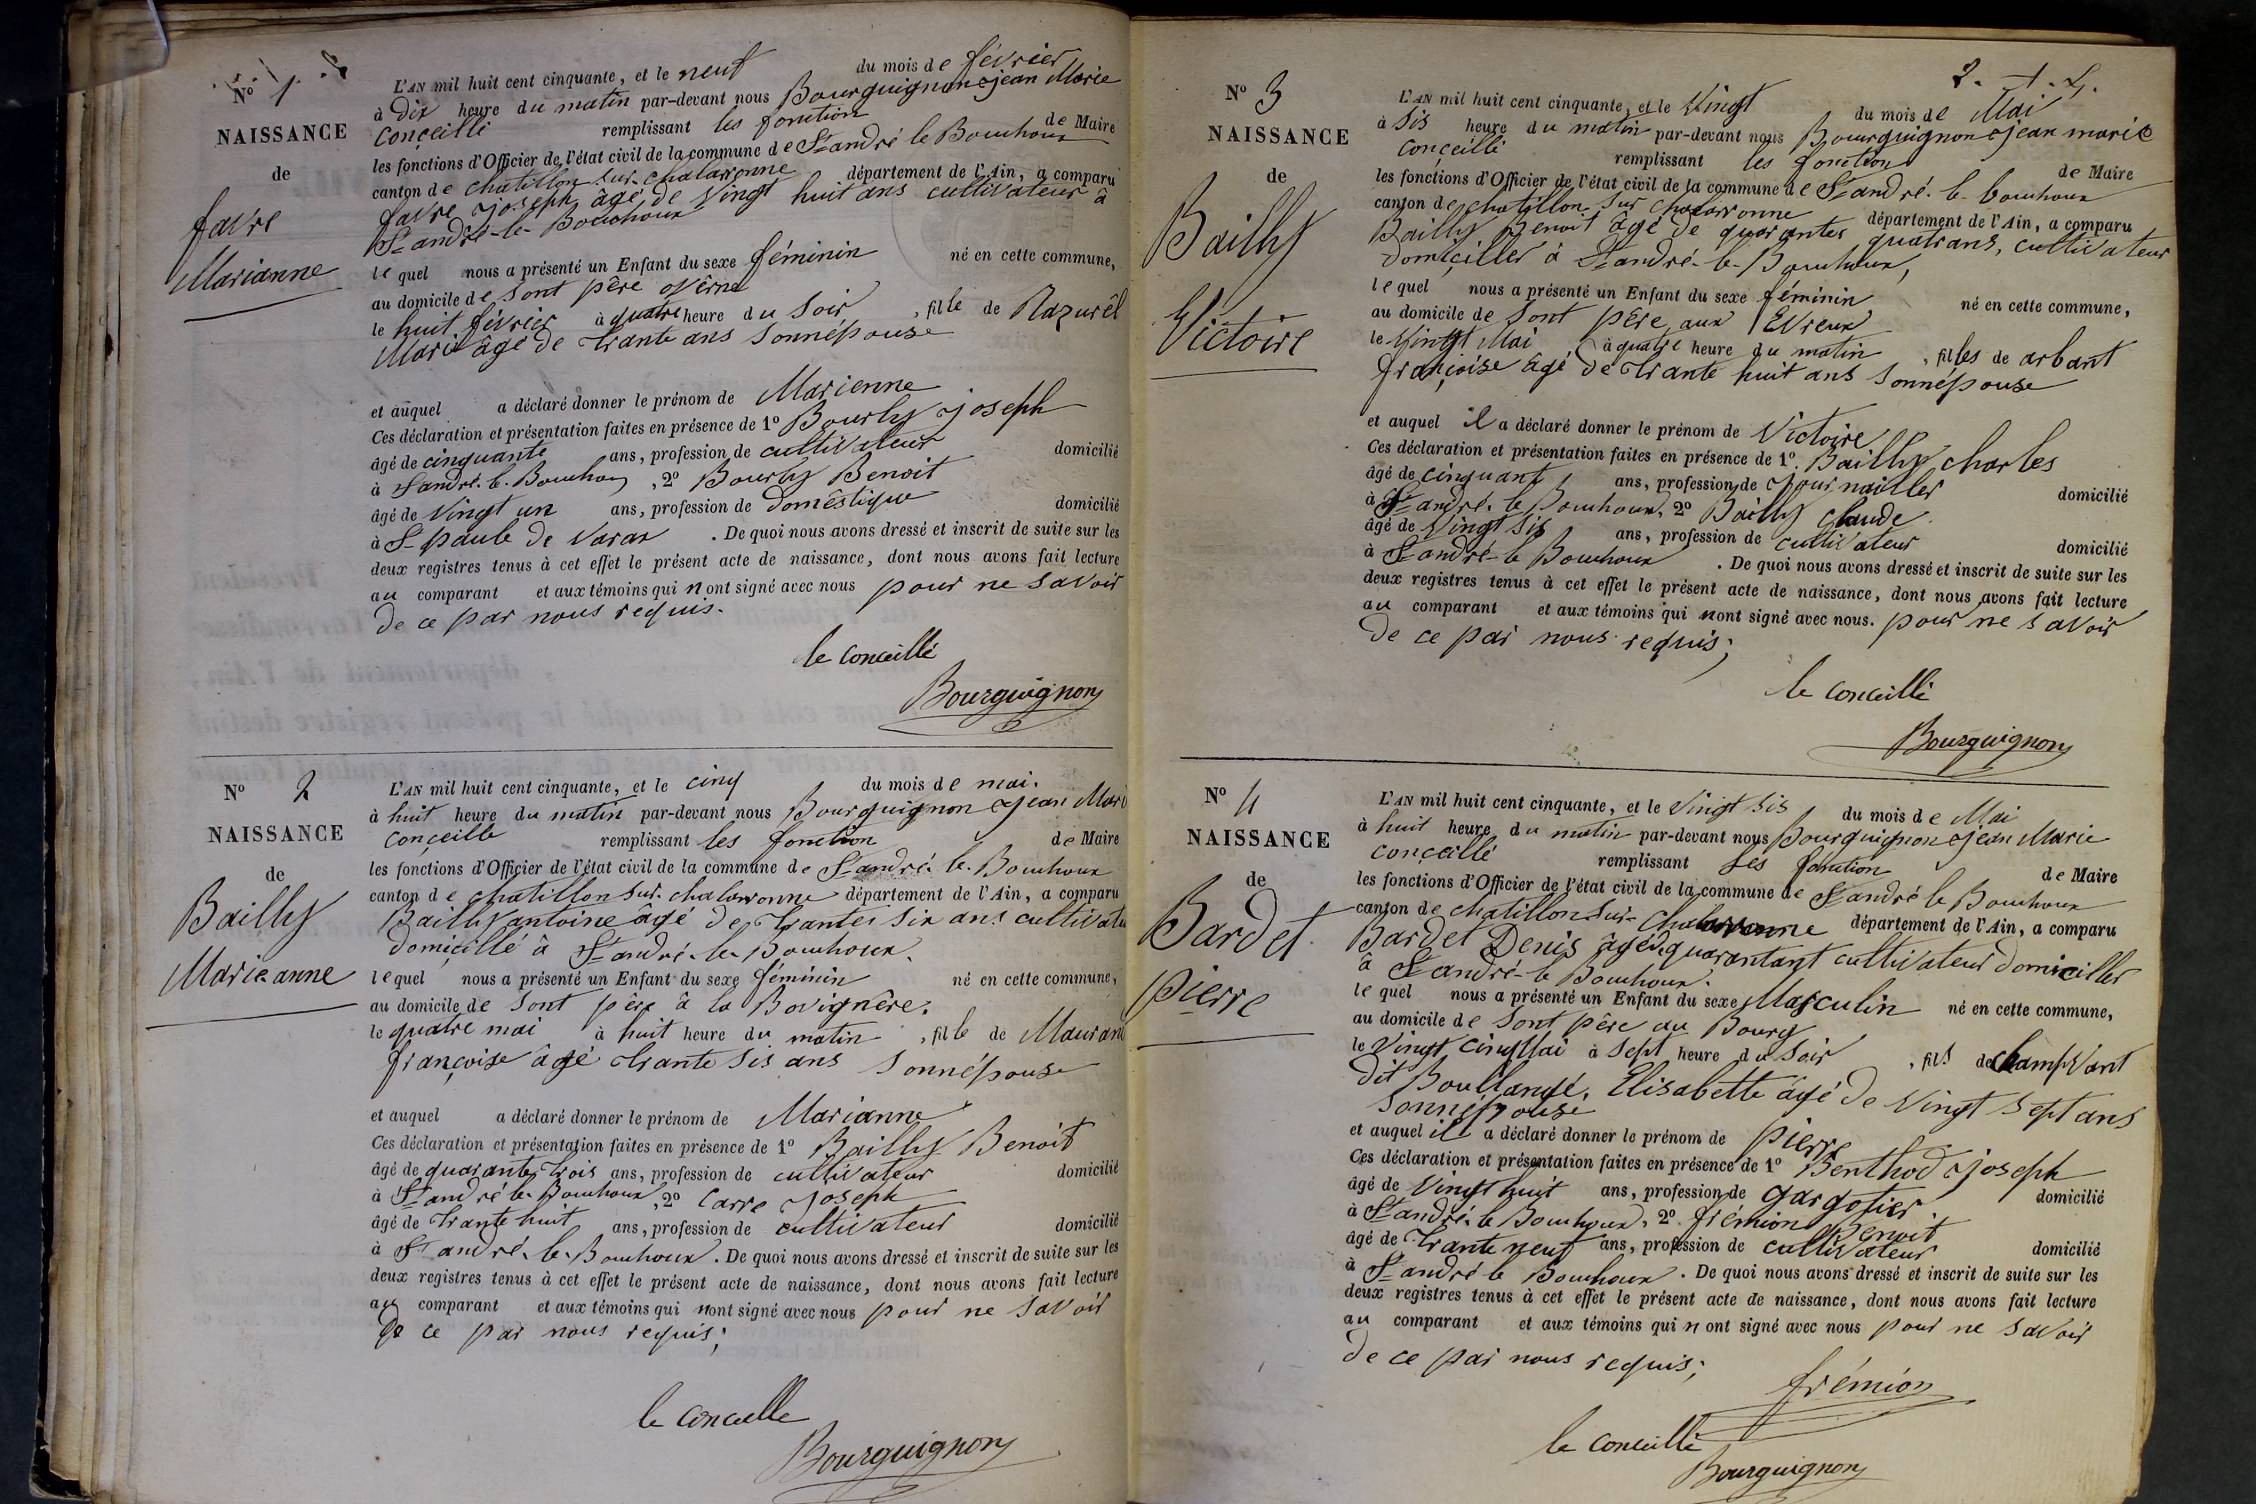 N° 1.
NAISSANCE
de
favre
Marianne
L'AN mil huit cent cinquante, et le neuf du mois de février
à dix heure du matin par-devant nous Bourguignon jean Marie
conçeillé remplissant les fonction de Maire
les fonctions d'Officier de l'état civil de la commune de St andré le Bouchoux
canton de chatillon sur chalaronne département de l'Ain, a comparu
favre joseph âgé de vingt huit ans cultivateur à
St andré-le-Bouchoux
lequel nous a présenté un Enfant du sexe féminin né en cette commune,
au domicile de sont père
le huit février à quatre heure du soir, fille de Nazurêl
Marie âgé de trante ans sonnépouse
et auquel a déclaré donner le prénom de Marienne
Ces déclaration et présentation faites en présence de 1° Bourly joseph
âgé de cinquante ans, profession de cultivateur domicilié
à St andré. le. Bouchoux, 2° Bourly Benoit
âgé de vingt un ans, profession de domêstique domicilié
à St paule de varax. De quoi nous avons dressé et inscrit de suite sur les
deux registres tenus à cet effet le présent acte de naissance, dont nous avons fait lecture
au comparant et aux témoins qui n ont signé avec nous pour ne savoir
de ce par nous requis.
le conceillé
Bourguignon
N° 2
NAISSANCE
de
Bailly
Marieanne
L'AN mil huit cent cinquante, et le cinq du mois de mai.
à huit heure du matin par-devant nous Bourguignon jean Mari
conçeille remplissant les fonction de Maire
les fonctions d'Officier de l'état civil de la commune de St andré. le. Bouchoux
canton de chatillon sur. chalaronne département de l'Ain, a comparu
Bailly antoine âgé de trantes six ans cultivate
domicillé à St andré. le. Bouchoux.
lequel nous a présenté un Enfant du sexe féminin né en cette commune,
au domicile de sont père à la Bovignêre.
le quatre mai à huit heure du matin, fille de Mauran
françoise âgé trante sis ans sonnépouse
et auquel a déclaré donner le prénom de Marianne
Ces déclaration et présentation faites en présence de 1° Bailly Benoit
âgé de quarantes trois ans, profession de cultivateur domicilié
à St andré le. Bouchoux, 2° Carre joseph
âgé de trante huit ans, profession de cultivateur domicilié
à St andré. le. Bouchoux. De quoi nous avons dressé et inscrit de suite sur les
deux registres tenus à cet effet le présent acte de naissance, dont nous avons fait lecture
au comparant et aux témoins qui n ont signé avec nous pour ne savoir
de ce par nous requis;
le conceille
Bourguignon
2.
N° 3
NAISSANCE
de
Bailly
Victoire
L'AN mil huit cent cinquante, et le vingt du mois de Mai
à sis heure du matin par-devant nous Bourguignon jean marie
conçeillé remplissant les fonction de Maire
les fonctions d'Officier de l'état civil de la commune de St andré. le. bouchoux
canton de chatillon. sur chalaronne département de l'Ain, a comparu
Bailly Benoit âgé de quarantes quatrans, cultivateur
domiçiller à St andré-le-Bouchoux,
lequel nous a présenté un Enfant du sexe féminin né en cette commune,
au domicile de sont père aux Evreux
le vingt Mai à quatre heure du matin, filles de arbant
françoise âgé de trante huit ans sonnépouse
et auquel il a déclaré donner le prénom de Victoire
Ces déclaration et présentation faites en présence de 1°. Bailly charles
âgé de cinquant ans, profession de journailler domicilié
à St andré. le Bouchoux, 2° Bailly claude
âgé de vingt sis ans, profession de cultivateur domicilié
à St andré-le Bouchoux. De quoi nous avons dressé et inscrit de suite sur les
deux registres tenus à cet effet le présent acte de naissance, dont nous avons fait lecture
au comparant et aux témoins qui n ont signé avec nous. pour ne savoir
de ce par nous requis;
le conceillé
Bourguignon
N° 4
NAISSANCE
de
Bardet
pierre
L'AN mil huit cent cinquante, et le vingt sis du mois de Mai
à huit heure du matin par-devant nous Bourguignon jean Marie
conçeillé remplissant les fonction de Maire
les fonctions d'Officier de l'état civil de la commune de St andré le Bouchoux
canton de chatillon sur-chalaronne département de l'Ain, a comparu
Bardet Denis âgé quarantant cultivateur domiciller
à St andré-le Bouchoux.
lequel nous a présenté un Enfant du sexe Masculin né en cette commune,
au domicile de sont père au Bourg
le vingt cinq Mai à sept heure du soir, fils de champvant
dit Boullangé, Elisabette âgé de vingt sept ans
sonnépouse
et auquel il a déclaré donner le prénom de pierre
Ces déclaration et présentation faites en présence de 1° Benthod joseph
âgé de vingt huit ans, profession de gargotier domicilié
à St andré. le Bouchoux, 2° frémion Benoit
âgé de trante neuf ans, profession de cultivateur domicilié
à St andré le Bouchoux. De quoi nous avons dressé et inscrit de suite sur les
deux registres tenus à cet effet le présent acte de naissance, dont nous avons fait lecture
au comparant et aux témoins qui n ont signé avec nous pour ne savoir
de ce par nous requis;
frémion
le conceillé
Bourguignon